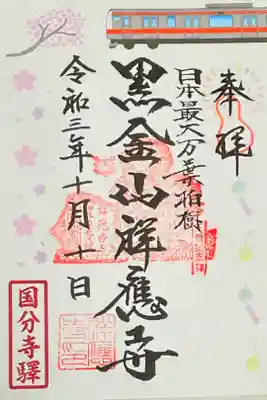 奉拝
日本最大万葉柏樹
黒金山祥應寺
令和三年十月十日
国分寺驛